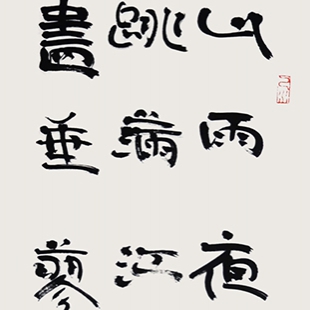 山雨夜
跳滿江
畫垂蓼